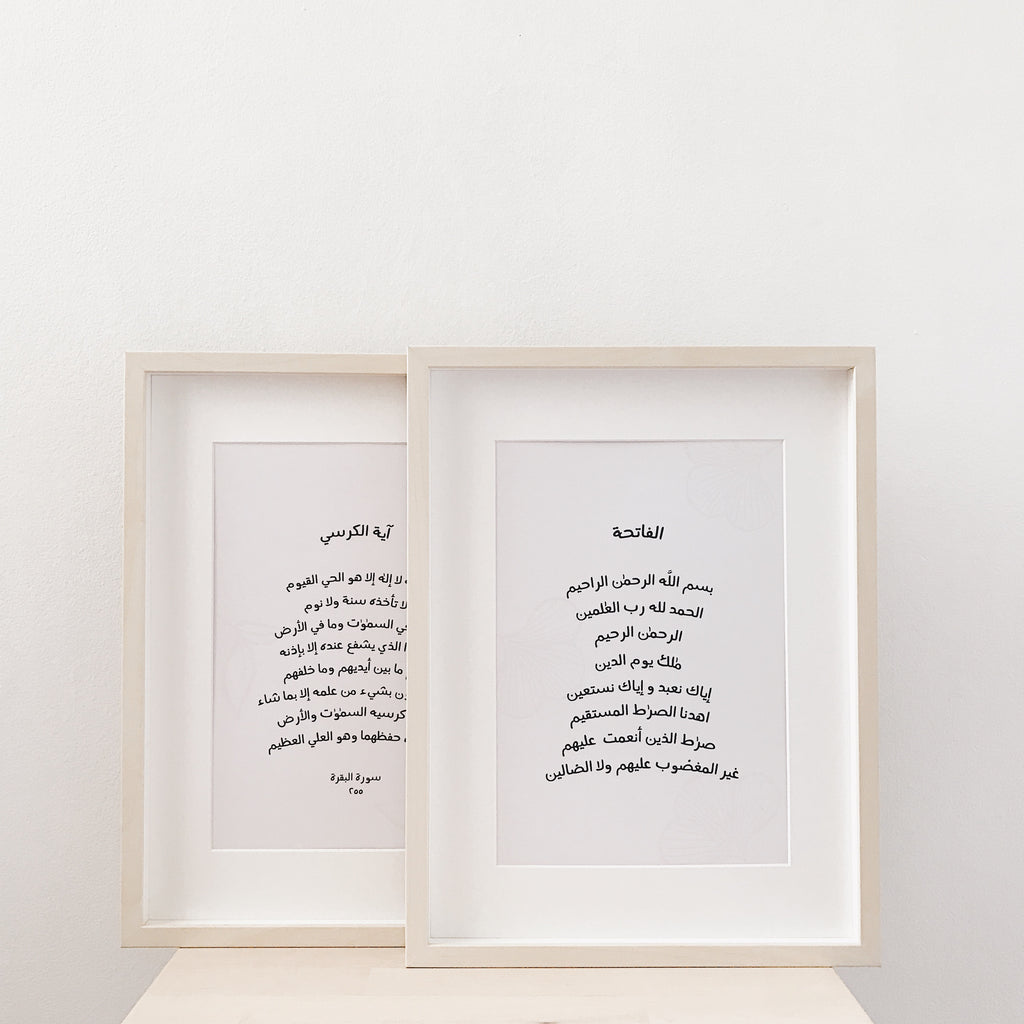 الفاتحة
بسم اللّٰه الرحمٰن الراحيم
الحمد لله رب العٰلمين
الرحمٰن الرحيم
مٰلك يوم الدين
إياك نعبد و إياك نستعين
اهدنا الصرٰط المستقيم
صرٰط الذين أنعمت عليهم
غير المغضوب عليهم ولا الضالين
آية الكرسي
لا إلٰه إلا هو الحي القيوم
لا تأخذه سنة ولا نوم
في السمٰوٰت وما في الأرض
الذي يشفع عنده إلا بإذنه
ما بين أيديهم وما خلفهم
بشيء من علمه إلا بما شاء
كرسيه السمٰوٰت والأرض
حفظهما وهو العلي العظيم
سورة البقرة
٢٥٥